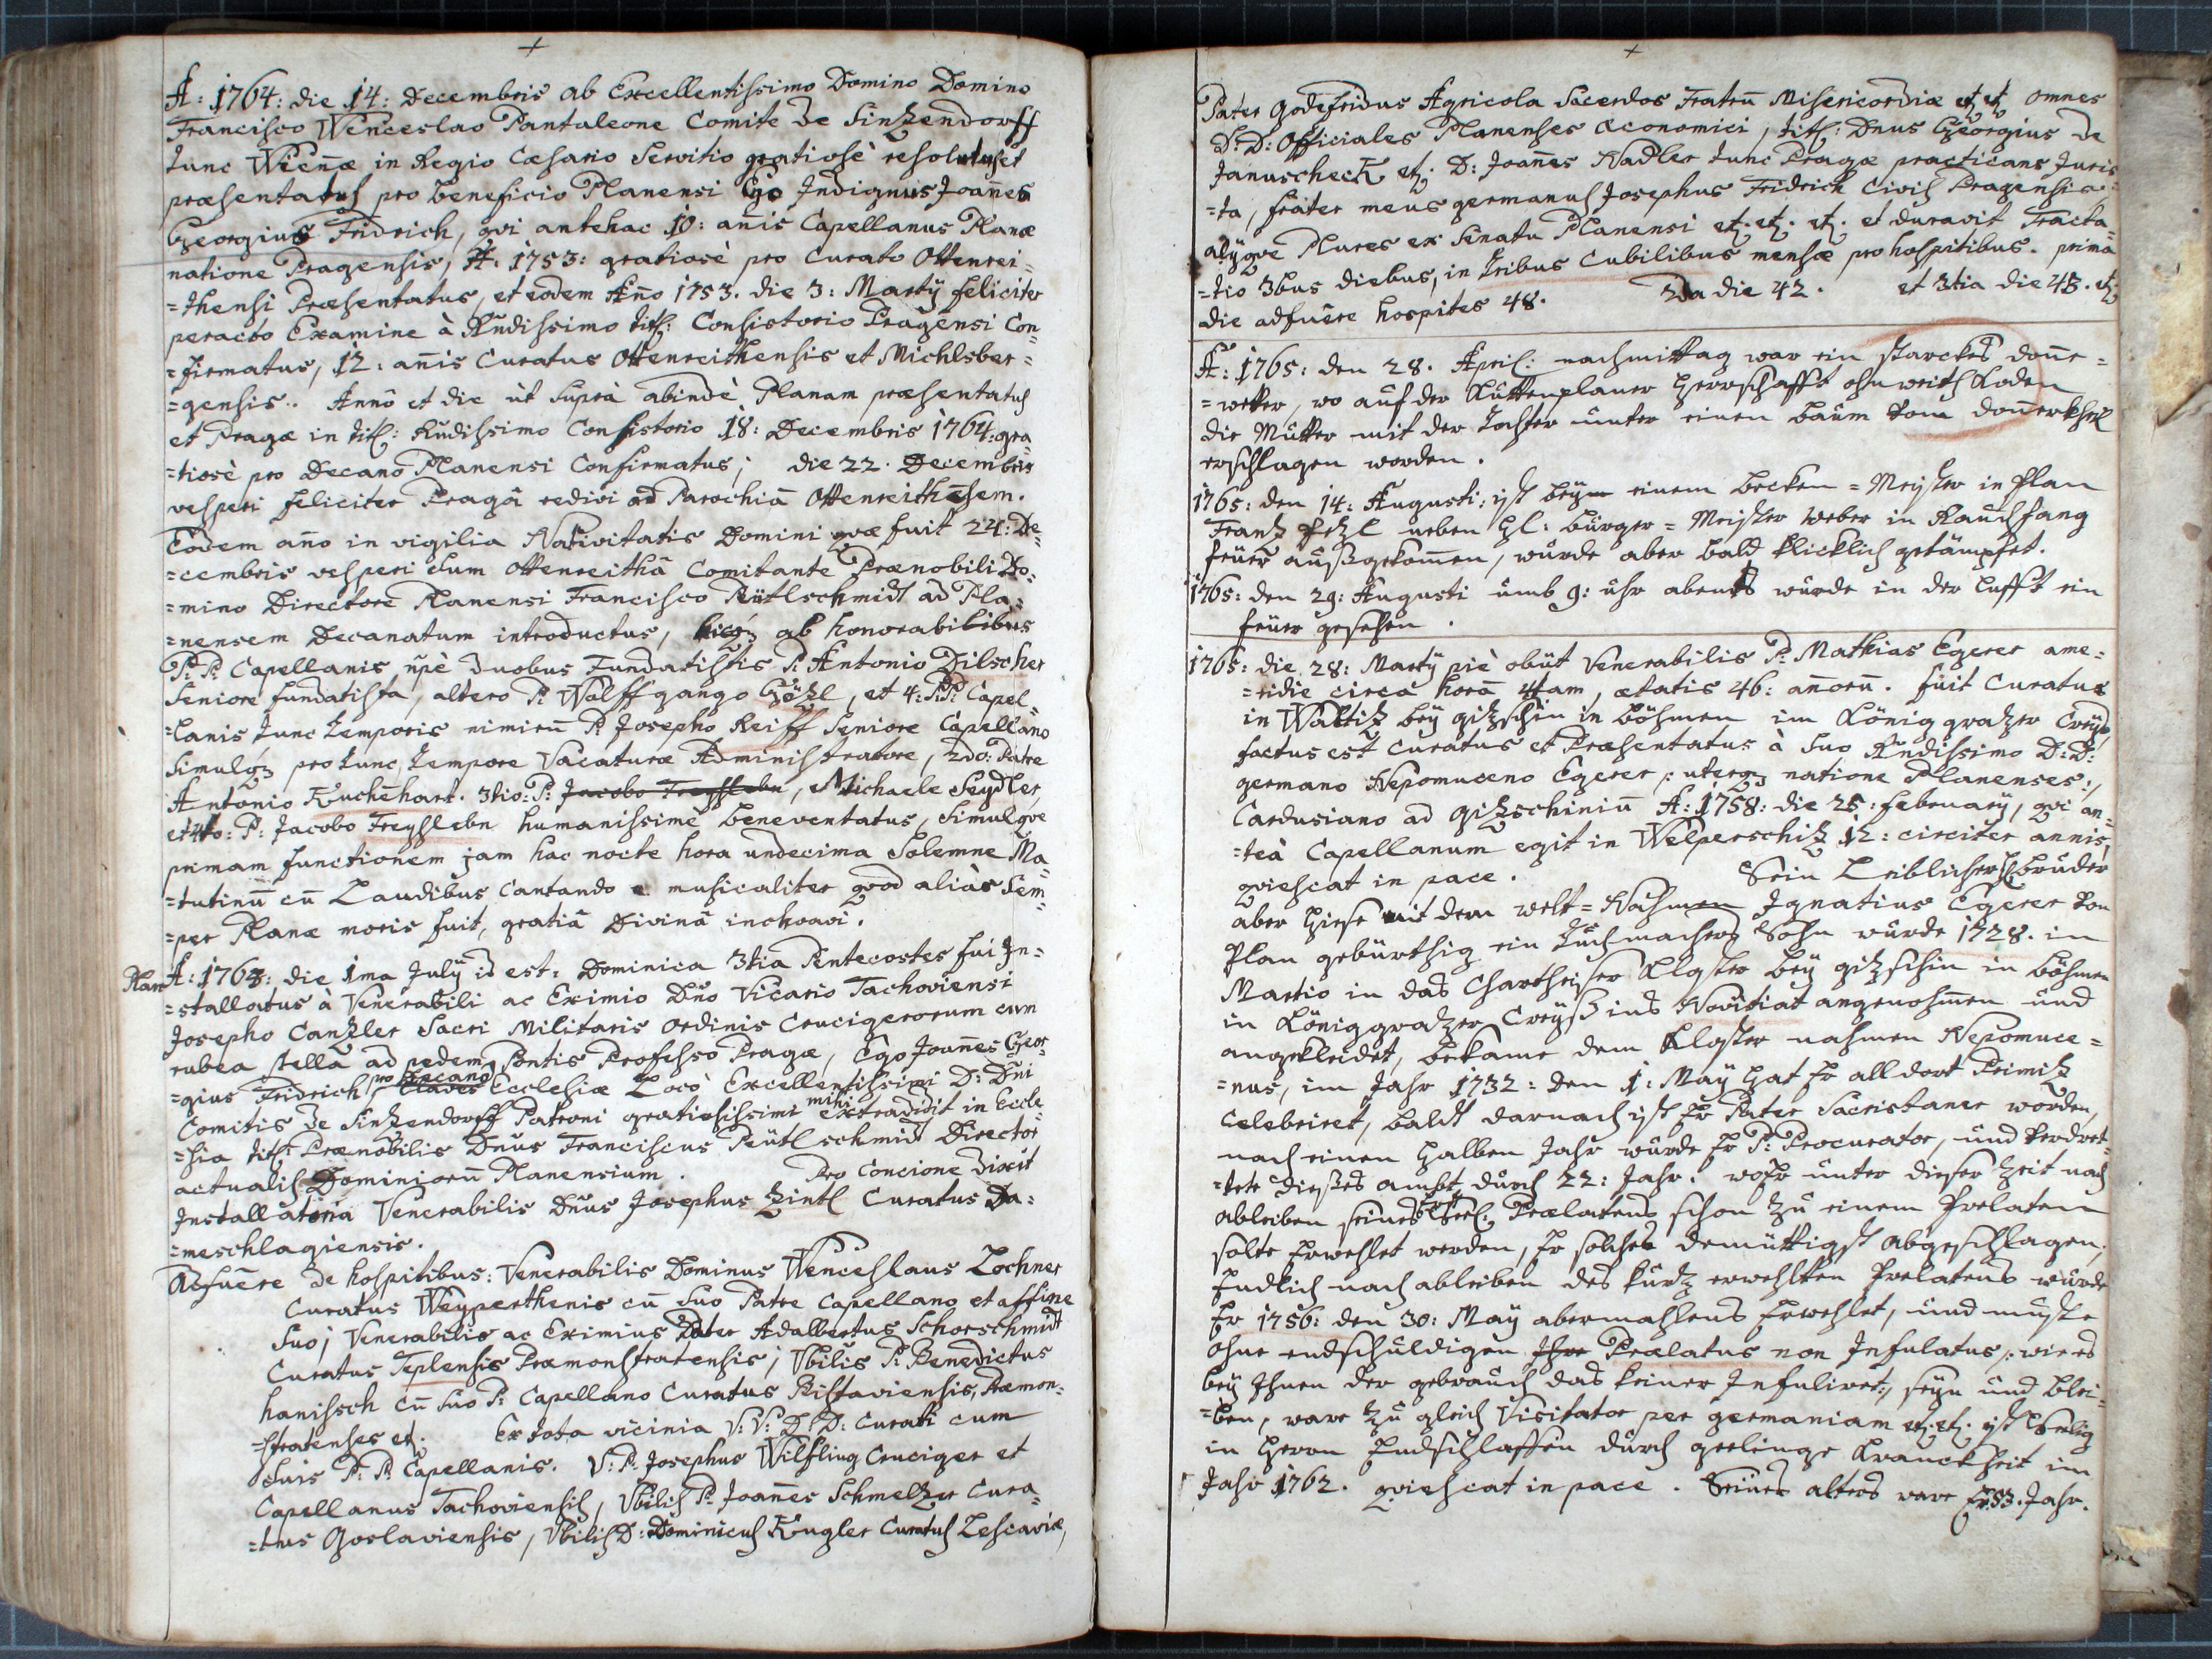 A: 1764: die 14: Decembris ab Excellentissimo Domino Domino
Francisco Wenceslao Pantaleone Comite de Sinzendorff
tunc Wiennæ in Regio Cæsario Servitio gratiosè resolutus et
præsentatus pro beneficio Planensi Ego Indignus Joañes
Georgius Fridrich, qvi antehac 10: añis Capellanus Planæ
natione Pragensis, A: 1753: gratiosè pro Curato Ottenrei=
=thensi Præsentatus, et eodem Año 1753. die 3: Martÿ feliciter
peracto Examine à Rñdissimo titl: Consistorio Pragensi Con=
=firmatus, 12: añis Curatus Ottenreithensis et Michlsber=
=gensis. Añô et die ùt suprà abindè Planam præsentatus
et Pragæ in titl: Rñdissimo Consistorio 18: Decembris 1764: gra=
=tiosè pro Decano Planensi Confirmatus; die 22. Decembris
vesperi feliciter Pragâ redivi ad Parochiã Ottenreithẽsem.
Eodem año in vigilia Nativitatis Domini qvæ fuit 24: De=
=cembris vesperi sum Ottenreithâ Comitante Prænobili Do=
=mino Directore Planensi Francisco Peütlschmidt ad Pla=
=nensem Decanatum introductus, ab honorabilibus
P: P: Capellanis ñpè duobus Fundatistis P: Antonio Dilscher
Seniore fundatista, altero P: Wolffgango Götzl, et 4: P:P: Capel=
=lanis tunc temporis nimirũ P: Josepho Reiff Seniore Capellano
simulqz pro tunc tempore Vacaturæ Administratore, 2do: Patre
Antonio Kuchẽhart. 3tio: P: Jacobo Freysslebn, Michaele Seydler,
et 4to: P: Jacobo Freysslebn humanissimè beneventatus, simulqve
primam functionem jam hac nocte hora undecima Solemne Ma=
=tutinũ cũ Laudibus Cantando musicaliter qvod aliàs Sem=
=per Planæ moris fuit, gratiâ Divinâ inchoavi.
Plan A: 1764: die 1ma Julÿ id est: Dominica 3tia Pentecostes fui In=
=stallatus à Venerabili ac Eximio Dño Vicario Tachoviensi
Josepho Canzler Sacri Militaris Ordinis Crucigerorum cum
rubea stella ad pedem Pontis Professo Pragæ, Ego Joañes Geor=
=gius Fridrich pro Decano Claves Ecclesiæ Locô Excellentissimi D: Dñi
Comitis de Sinzendorff Patroni gratiosissimi mihi extradidit in Eccle=
=sia titl: Prænobilis Dñus Franciscus Peütlschmidt Director
actualis Dominiorũ Planensium. Pro Concione dixit
Installatoria Venerabilis Dñus Josephus Zintl Curatus Da=
=meschlagiensis.
Adfuêre de hospitibus: Venerabilis Dominus Wenceslaus Lochner
Curatus Weyperthenis cũ suo Patre Capellano et affine
suo; Venerabilis ac Eximius Pater Adalbertus Schorschmidt
Curatus Teplensis Præmonstratensis; Vbilis P: Benedictus
hanisch cũ suo P: Capellano Curatus Ristaviensis, Præmon=
=stratenses et. Ex tota vicinia V: V: D: D: Curati cum
suis P: P: Capellanis. V: P: Josephus Wilfling Cruciger et
Capellanus Tachoviensis, Vbilis P: Joañes Schmelzer Cura=
=tus Goslaviensis, Vbilis D: Dominicus Kugler Curatus Lescaviæ,
Pater Godefridus Agricola Sacerdos Fratrũ Misericordiæ etz etz omnes
D: D: Officiales Planenses œconomici, titl: Dnus Georgius de
Januscheck etz. D: Joañes Nadler tunc Pragæ practicans Juris=
=ta, frater meus germanus Josephus Fridrich Civis Pragensis
alÿqve Plures ex Senatu Planensi etz. etz. etz. et duravit Tracta=
=tio 3bus diebus, in tribus Cubilibus mensæ pro hospitibus. prima
die adfuêre hospites 48. 2da die 42. et 3tia die 43. etz
A: 1765: den 28. April: nachmittag war ein starckes doñer=
=weter, wo auf der Kuttenplaner Herrschafft ohnweith Loden
die Mutter mit der Tochter unter einen baum vom doñerkheil
erschlagen worden.
1765: den 14: Augusti: ist beÿm einem becken=Meister in Plan
Frantz neben Hl: bürger=Meister Weber in Rauchfang
feüer außgekomen, wurde aber bald klicklich getämpfet.
1765: den 29: Augusti umb 9: uhr abents wurde in der Lufft ein
feüer gesehen.
1765: die 28: Martÿ piè obÿt Venerabilis P: Mathias Egerer ame=
=ridie circa horã 4tam, ætatis 46: añorũ. fuit Curatus
in Waltitz beÿ gitzschin in böhmen im Königgratzer Creÿß,
factus est Curatus et Præsentatus à suo Rñdissimo D: D:
germano Nepomuceno Egerer /: uterqz natione Planenses :/
Cardusiano ad Gitzschiniũ A: 1758: die 25: februarÿ, qvi an=
=teà Capellanum egit in Welperschitz 12: circiter annis,
qviescat in pace. Sein Leiblicher H bruder
aber hiese mit dem welt=Nahmen Ignatius Egerer von
Plan gebürthig ein Tuchmachers Sohn wurde 1728. in
Martio in das Chartheiser Kloster beÿ gitzschin in böhmen
in Königgratzer Creÿß ins Novitiat angenohmen und
angekleidet, bekame dem Kloster nahmen Nepomuce=
=nus, im Jahr 1732: den 1: Maÿ hat Er alldort Primitz
Celebriret, baldt darnach ist Er Pater Sacristaner worden,
nach einen halben Jahr wurde Er P: Procurator, und verdret=
=tete dießes ambt durch 22: Jahr. wo Er unter dieser Zeit nach
ableiben seines Seel: Prælatens schon zu einem Prelaten
solte Erwehlet werden, Er solches demüttigst abgeschlagen;
Endlich nach ableiben des kurtz erwehlten Prelatens wurde
Er 1756: den 30: Maÿ abermahlens Erwehlet, und muste
ohne endschuldigen Prælatus non Infulatus /: wie es
beÿ Ihnen der gebrauch das keiner Infulirt :/ seÿn und blei=
=ben, ware zugleich Visitator per germaniam etz. etz. ist Seelig
in Herrn Endschlaffen durch geelinge Kranckheit im
Jahr 1762. qviescat in pace. Seines alters ware Er 53. Jahr.